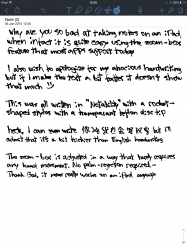 Note (2)
Why are you so bad at taking notes on an iPad
when infact it is quite easy using the zoom-box
feature that most apps support today
I also wish to apologise for my atrocious handwriting
but if I make the text a bit faster it doesn't show
that much :)
This was all written in "Notability" with a rocket-
shaped stylus with a transparent tip
heck, I can even write but I'll
admit that it's a bit trickier than English handwriting
The zoom-box is adjusted in a way that hardly requires
any hand movement. No palm-rejection required.
Thank God, it never really works on an iPad anyways